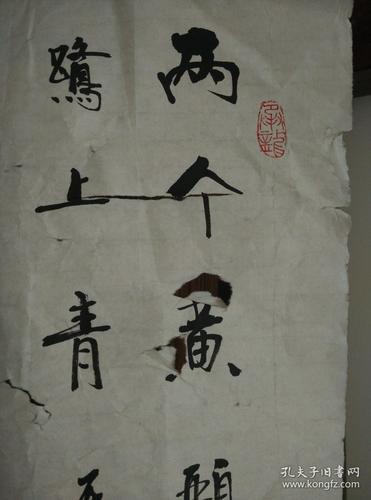 两个黄
鷺上青
孔夫子旧书网
www.kongfz.com